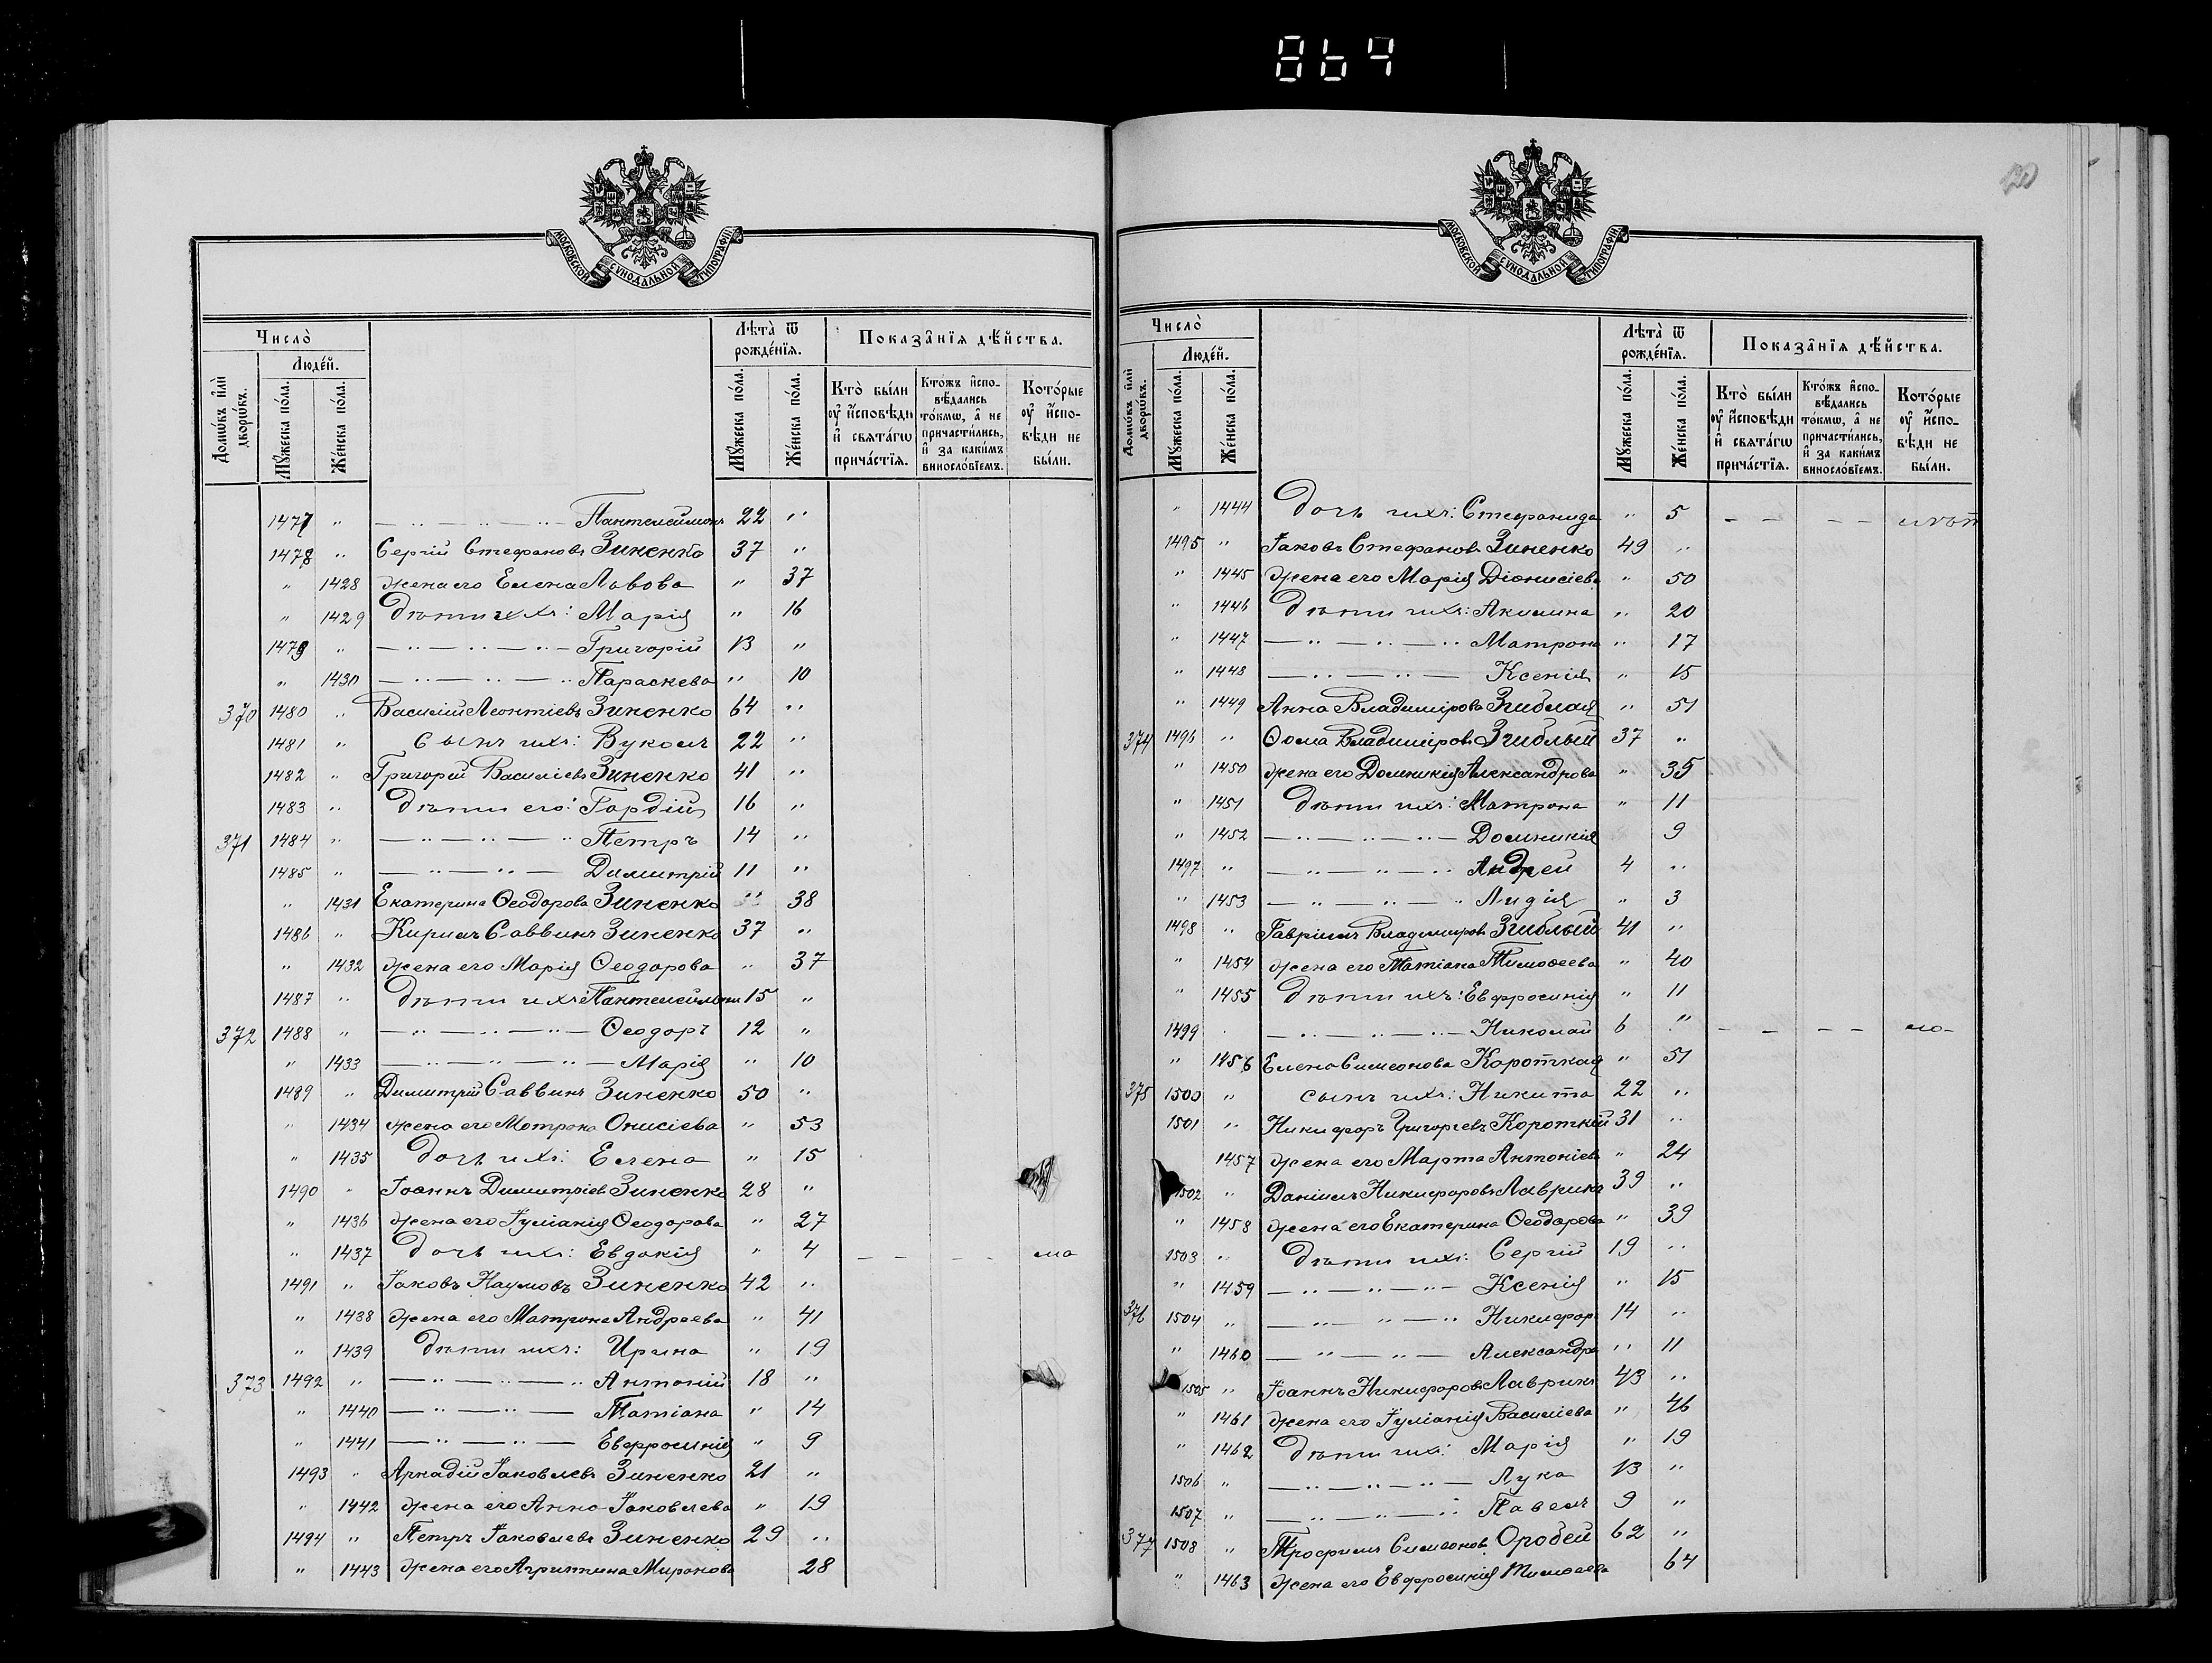 864
120
МОСКОВСКОЙ СѴНОДАЛЬНОЙ ТИПОГРАФІИ
Число̀
Лѣта̀ ѿ рожде́нїѧ.
Показа̂нїѧ дѣ́йства.
Люде́й.
Домѡ́въ и҆лѝ дворѡ́въ.
Мꙋ́жеска по́ла.
Же́нска по́ла.
Мꙋ́жеска по́ла.
Же́нска по́ла.
Кто̀ бы́ли ᲂу҆ и҆сповѣди и҆ свѧта́гѡ прича́стїѧ.
Кто́жъ и҆спо-вѣдались то́кмѡ, а҆ не причасти́лись, и҆ за каки́мъ виносло́вїемъ.
Кото́рые ᲂу҆ и҆спо-вѣди не бы́ли.
1477 " — " — " — " — Пантелеймонъ 22 "
1478 " Сергій Стефановъ Зиненко 37 "
" 1428 жена его Елена Львова " 37
" 1429 дѣти ихъ: Марія " 16
1479 " — " — " — " — Григорій 13 "
" 1430 — " — " — " Параскева " 10
370 1480 " Василій Леонтіевъ Зиненко 64 "
1481 " Сынъ ихъ: Вуколъ 22 "
1482 " Григорій Василіевъ Зиненко 41 "
1483 " дѣти его: Гордій 16 "
371 1484 " — " — " — " Петръ 14 "
1485 " — " — " — Димитрій 11 "
" 1431 Екатерина Ѳеодорова Зиненко " 38
1486 " Кирилъ Саввинъ Зиненко 37 "
" 1432 жена его Марія Ѳеодорова " 37
1487 " дѣти ихъ: Пантелеймонъ 15 "
372 1488 " — " — " — " — Ѳеодоръ 12 "
" 1433 — " — " — " — Марія " 10
1489 " Димитрій Саввинъ Зиненко 50 "
" 1434 жена его Мотрона Онисіева " 53
" 1435 дочь ихъ: Елена " 15
1490 " Іоаннъ Димитріевъ Зиненко 28 "
" 1436 жена его Іуліанія Ѳеодорова " 27
" 1437 дочь ихъ: Евдокія " 4 — — — —
1491 " Іаковъ Наумовъ Зиненко 42 "
" 1438 жена его Матрона Андреева " 41
" 1439 дѣти ихъ: Ирина " 19
373 1492 " — " — " — " Антоній 18 "
" 1440 — " — " — Татіана " 14
" 1441 — " — " — Евфросинія " 9
1493 " Аркадій Іаковлевъ Зиненко 21 "
" 1442 жена его Анна Іаковлева " 19
1494 " Петръ Іаковлевъ Зиненко 29 "
" 1443 жена его Агрипина Миронова 28
МОСКОВСКОЙ СѴНОДАЛЬНОЙ ТИПОГРАФІИ
Число̀
Лѣта̀ ѿ рожде́нїѧ.
Показа̂нїѧ дѣ́йства.
Люде́й.
Домѡ́въ и҆лѝ дворѡ́въ.
Мꙋ́жеска по́ла.
Же́нска по́ла.
Мꙋ́жеска по́ла.
Же́нска по́ла.
Кто̀ бы́ли ᲂу҆ и҆сповѣди и҆ свѧта́гѡ прича́стїѧ.
Кто́жъ и҆спо-вѣдались то́кмѡ, а҆ не причасти́лись, и҆ за каки́мъ виносло́вїемъ.
Кото́рые ᲂу҆ и҆спо-вѣди не бы́ли.
" 1444 дочь ихъ: Стефанида " 5 — — — —
1495 " Іаковъ Стефановъ Зиненко 49 "
" 1445 жена его Марія Діонисіева " 50
" 1446 дѣти ихъ: Акилина " 20
" 1447 — " — " — " Матрона " 17
" 1448 — " — " — Ксенія " 15
" 1449 Анна Владимірова Згиблая " 51
374 1496 " Ѳома Владиміровъ Згиблый 37 "
" 1450 жена его Домникія Александрова " 35
" 1451 дѣти ихъ: Матрона " 11
" 1452 — " — " — " — Домникія 9
1497 " — " — " — " Андрей 4 "
" 1453 — " — " — " Лидія " 3
1498 " Гавріилъ Владиміровъ Згиблый 41 "
" 1454 жена его Татіана Тимоѳеева " 40
" 1455 дѣти ихъ: Евфросинія " 11
1499 — " — " — " — Николай 6 " — — — —
" 1456 Елена Симеонова Короткая " 51
375 1500 " сынъ ихъ: Никита 22 "
1501 " Никифоръ Григорьевъ Короткій 31 "
1457 жена его Марта Антоніева " 24
1502 " Даніилъ Никифоровъ Лаврикъ 39 "
" 1458 жена его Екатерина Ѳеодорова " 39
1503 " дѣти ихъ: Сергій 19 "
" 1459 — " — " — " — Ксенія " 15
376 1504 " — " — " — " Никифоръ 14 "
" 1460 — " — " — Александра " 11
1505 " Іоаннъ Никифоровъ Лаврикъ 43 "
" 1461 жена его Іуліанія Василіева " 46
" 1462 дѣти ихъ: Марія " 19
1506 " — " — " — " — Лука 13 "
1507 " — " — " — " Павелъ 9 "
377 1508 " Трофимъ Симеоновъ Оробей 62 "
" 1463 жена его Евфросинія Тимоѳеева 64